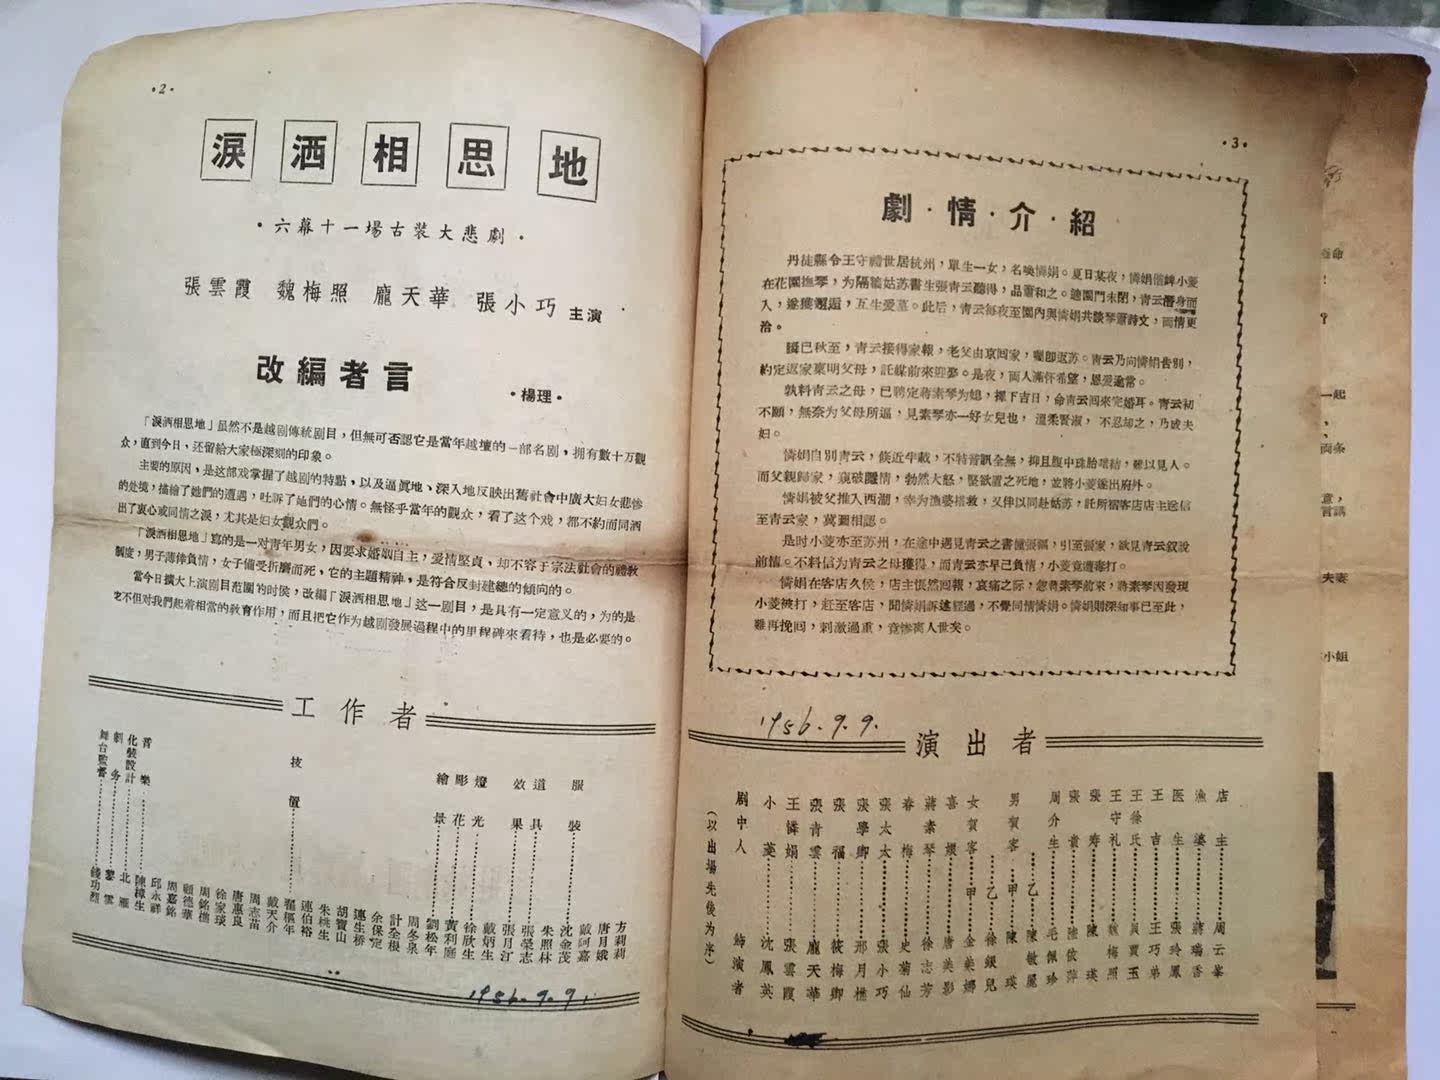 ·2·
淚洒相思地
·六幕十一場古裝大悲劇·
張雲霞 魏梅照 龐天華 張小巧 主演
改編者言
·楊理·
「淚洒相思地」虽然不是越剧傳統剧目，但無可否認它是當年越壇的一部名剧，拥有數十万觀
众，直到今日，还留給大家極深刻的印象。
主要的原因，是这部戏掌握了越剧的特點，以及逼眞地、深入地反映出舊社會中廣大妇女悲惨
的处境，描繪了她們的遭遇，吐訴了她們的心情。無怪乎當年的觀众，看了这个戏，都不約而同洒
出了衷心感同情之淚，尤其是妇女觀众們。
「淚洒相思地」寫的是一对青年男女，因要求婚姻自主，爱情堅貞，却不容于宗法社會的禮教
制度，男子薄倖負情，女子備受折磨而死，它的主題精神，是符合反封建總的傾向的。
當今日擴大上演剧目范圍的时侯，改編「淚洒相思地」这一剧目，是具有一定意义的，为的是
它不但对我們起着相當的敎育作用，而且把它作为越剧發展過程中的里程碑來看待，也是必要的。
工作者
舞台監督 錢功烈
劇务 黎雲
化裝設計 北雁
音樂 陳樟生
邱永祥
周嘉銘
顧德華
周銘樵
徐家琰
唐惠良
周志苗
技置 戴天介
翟樞年
連伯裕
朱桃生
胡寶山
連生桥
余保定
計全根
周冬泉
繪景 劉松年
彫花 黃利庭
燈光 徐欣生
戴炳生
效果 張月江
道具 張榮志
朱照林
服裝 沈金茂
戴阿嘉
唐月娥
方莉莉
1956.9.9.
·3·
劇·情·介·紹
丹徒縣令王守禮世居杭州，單生一女，名喚憐娟。夏日某夜，憐娟偕婢小菱
在花園撫琴，为隔牆姑苏書生張青云聽得，品蕭和之。適園門未閉，青云潛身而
入，遂獲邂逅，互生爱慕。此后，青云每夜至園內與憐娟共談琴蕭詩文，而情更
洽。
轉已秋至，青云接得家報，老父由京回家，囑卽返苏。青云乃向憐娟告別，
約定返家稟明父母，託媒前來迎娶。是夜，両人滿怀希望，恩爱逾常。
孰料青云之母，已聘定蔣素琴为媳，擇下吉日，命青云回來完婚耳。青云初
不願，無奈为父母所逼，見素琴亦一好女兒也，溫柔賢淑，不忍却之，乃成夫
妇。
憐娟自別青云，倏近半載，不特音訊全無，抑且腹中珠胎暗結，难以見人。
而父親歸家，窺破隱情，勃然大怒，堅欲置之死地，並將小菱逐出府外。
憐娟被父推入西湖，幸为漁婆搭救，又伴以同赴姑苏，託所宿客店店主送信
至青云家，冀圖相認。
是时小菱亦至苏州，在途中遇見青云之書僮張福，引至張家，欲見青云叙說
前情。不料信为青云之母獲得，而青云亦早已負情，小菱竟遭毒打。
憐娟在客店久侯，店主悵然回報，哀痛之际，忽報素琴前來，蔣素琴因發現
小菱被打，赶至客店，聞憐娟訴述經過，不覺同情憐娟。憐娟則深知事已至此，
难再挽回，刺激過重，竟慘离人世矣。
1956.9.9.
演出者
剧中人 飾演者
（以出場先後为序）
小菱 沈鳳英
王憐娟 張雲霞
張青雲 龐天華
張福 筱梅卿
張學卿 邢月樵
張太太 張小巧
春梅 史菊仙
蔣素琴 徐志芳
喜嬛 唐美影
女賀客甲 金美娜
乙 徐銀兒
男賀客甲 陳瑛
乙 陳敏麗
周介生 毛佩珍
張貴 陸依萍
張寿 陳瑛
王守礼 魏梅照
王徐氏 貝賈玉
王吉 王巧弟
医生 張玲鳳
漁婆 蔣瑞香
店主 周云峯
一起
両条
意，
言講
夫妻
小姐